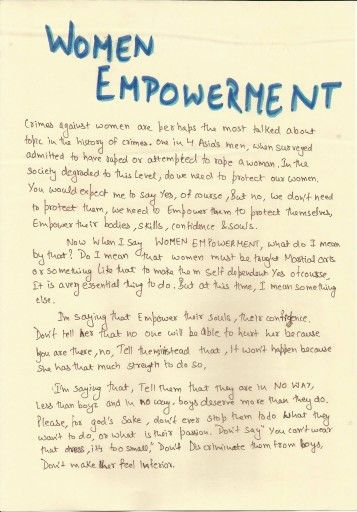 WOMEN
EMPOWERMENT
Crimes against women are perhaps the most talked about
topic in the history of crimes. One in 4 Asia's men, when surveyed
admitted to have raped or attempted to rape a woman. In the
society degraded to this level, do we need to protect our women.
You would expect me to say Yes, of course, But no, we don't need
to protect them, we need to Empower them to protect themselves,
Empower their bodies, skills, confidence & souls.
Now When I say WOMEN EMPOWERMENT, what do I mean
by that? Do I mean that women must be taught Martial arts
or something like that to make them Self dependent Yes of course.
It is a very essential thing to do. But at this time, I mean something
else.
I'm saying that Empower their souls, their confidence.
Don't tell her that no one will be able to hurt her because
you are there, no, Tell them instead that, it won't happen because
she has that much strength to do so,
I'm saying that, Tell them that they are in NO WAY,
Less than boys and in no way boys deserve more than they do.
Please, for god's sake, don't ever stop them to do what they
want to do, or what is their passion. Don't say "You can't wear
that dress, it's too small," Don't Discriminate them from boys,
Don't make her feel inferior.